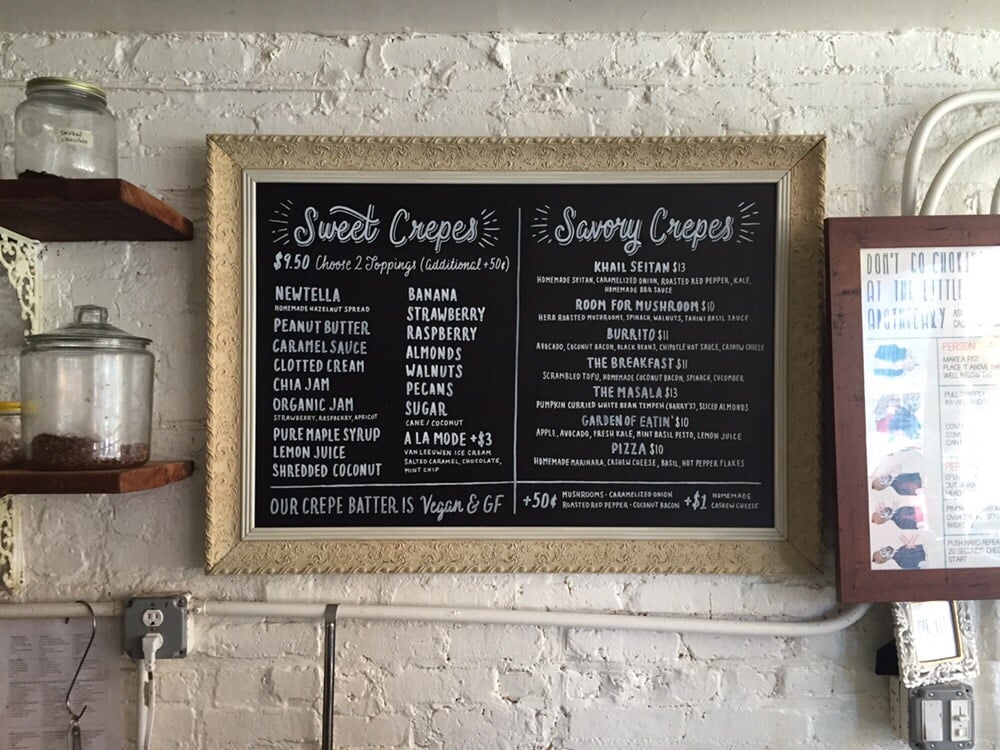 smoked
chocolate
Sweet Crepes
$9.50 Choose 2 Toppings (additional +50¢)
NEWTELLA
HOMEMADE HAZELNUT SPREAD
PEANUT BUTTER
CARAMEL SAUCE
CLOTTED CREAM
CHIA JAM
ORGANIC JAM
STRAWBERRY, RASPBERRY, APRICOT
PURE MAPLE SYRUP
LEMON JUICE
SHREDDED COCONUT
BANANA
STRAWBERRY
RASPBERRY
ALMONDS
WALNUTS
PECANS
SUGAR
CANE / COCONUT
A LA MODE +$3
VAN LEEUWEN ICE CREAM
SALTED CARAMEL, CHOCOLATE,
MINT CHIP
OUR CREPE BATTER IS Vegan & GF
Savory Crepes
KHAIL SEITAN $13
HOMEMADE SEITAN, CARAMELIZED ONION, ROASTED RED PEPPER, KALE,
HOMEMADE BBQ SAUCE
ROOM FOR MUSHROOM $10
HERB ROASTED MUSHROOMS, SPINACH, WALNUTS, TAHINI BASIL SAUCE
BURRITO $11
AVOCADO, COCONUT BACON, BLACK BEANS, CHIPOTLE HOT SAUCE, CASHEW CHEESE
THE BREAKFAST $11
SCRAMBLED TOFU, HOMEMADE COCONUT BACON, SPINACH, CUCUMBER
THE MASALA $13
PUMPKIN CURRIED WHITE BEAN TEMPEH (BARRY'S), SLICED ALMONDS
GARDEN OF EATIN' $10
APPLE, AVOCADO, FRESH KALE, MINT BASIL PESTO, LEMON JUICE
PIZZA $10
HOMEMADE MARINARA, CASHEW CHEESE, BASIL, HOT PEPPER FLAKES
+50¢ MUSHROOMS - CARAMELIZED ONION
ROASTED RED PEPPER - COCONUT BACON
+$1 HOMEMADE
CASHEW CHEESE
DON'T GO CHOKIN
AT THE LITTLE
APOTHECARY
PERSON
MAKE A FIST
PLACE IT ABOVE
WELL BELOW
PUSH HARD REPEA
20 SECONDS CHEC
START